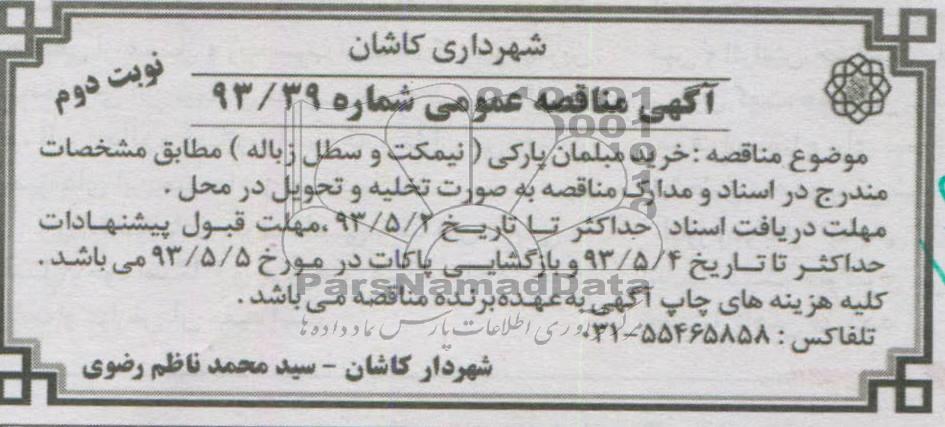 شهرداری کاشان
نوبت دوم
آگهی مناقصه عمومی شماره ۹۳/۳۹
موضوع مناقصه : خرید مبلمان پارکی ( نیمکت و سطل زباله ) مطابق مشخصات
مندرج در اسناد و مدارک مناقصه به صورت تخلیه و تحویل در محل .
مهلت دریافت اسناد حداکثر تا تاریخ ۹۳/۵/۲ ،مهلت قبول پیشنهادات
حداکثر تا تاریخ ۹۳/۵/۴ و بازگشایی پاکات در مورخ ۹۳/۵/۵ می باشد .
ParsNamadData
کلیه هزینه های چاپ آگهی به عهده برنده مناقصه می باشد .
تلفاکس : ۵۵۴۶۵۸۵۸-۰۳۱
شهردار کاشان - سید محمد ناظم رضوی